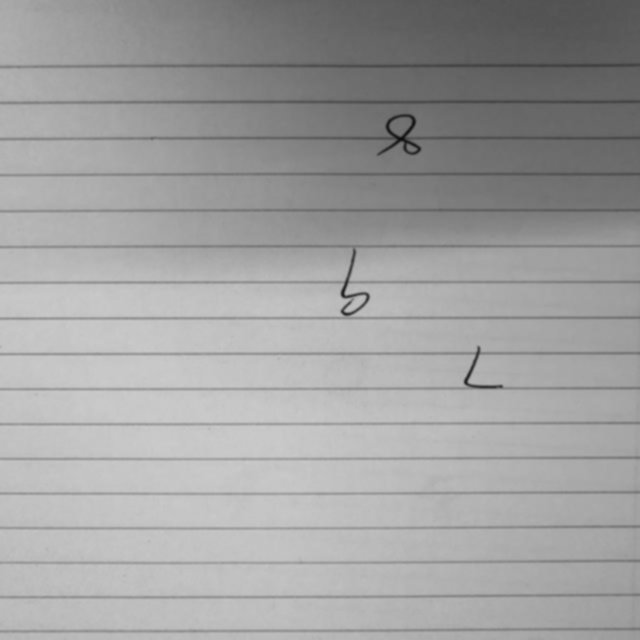 8
b
L